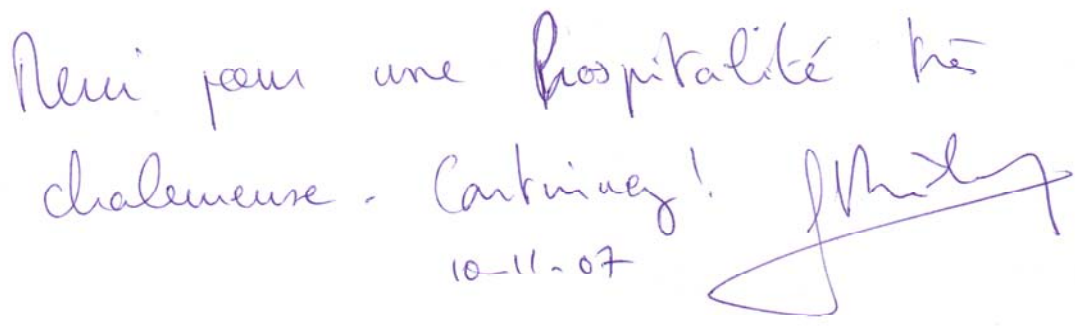 Merci pour une hospitalité très
chaleureuse. Continuez !
10-11-07